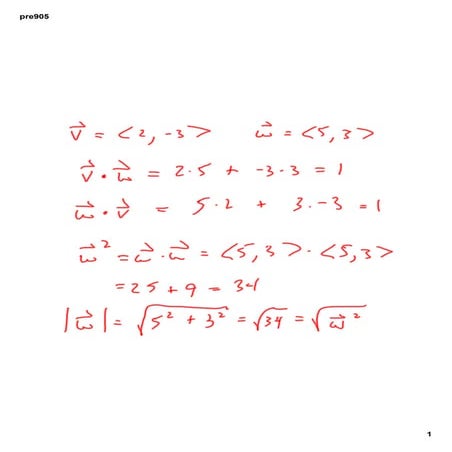 pre905
v⃗ = <2, -3> w⃗ = <5, 3>
v⃗ · w⃗ = 2·5 + -3·3 = 1
w⃗ · v⃗ = 5·2 + 3·-3 = 1
w⃗² = w⃗ · w⃗ = <5, 3> · <5, 3>
= 25 + 9 = 34
|w⃗| = √(5² + 3²) = √34 = √(w⃗²)
1